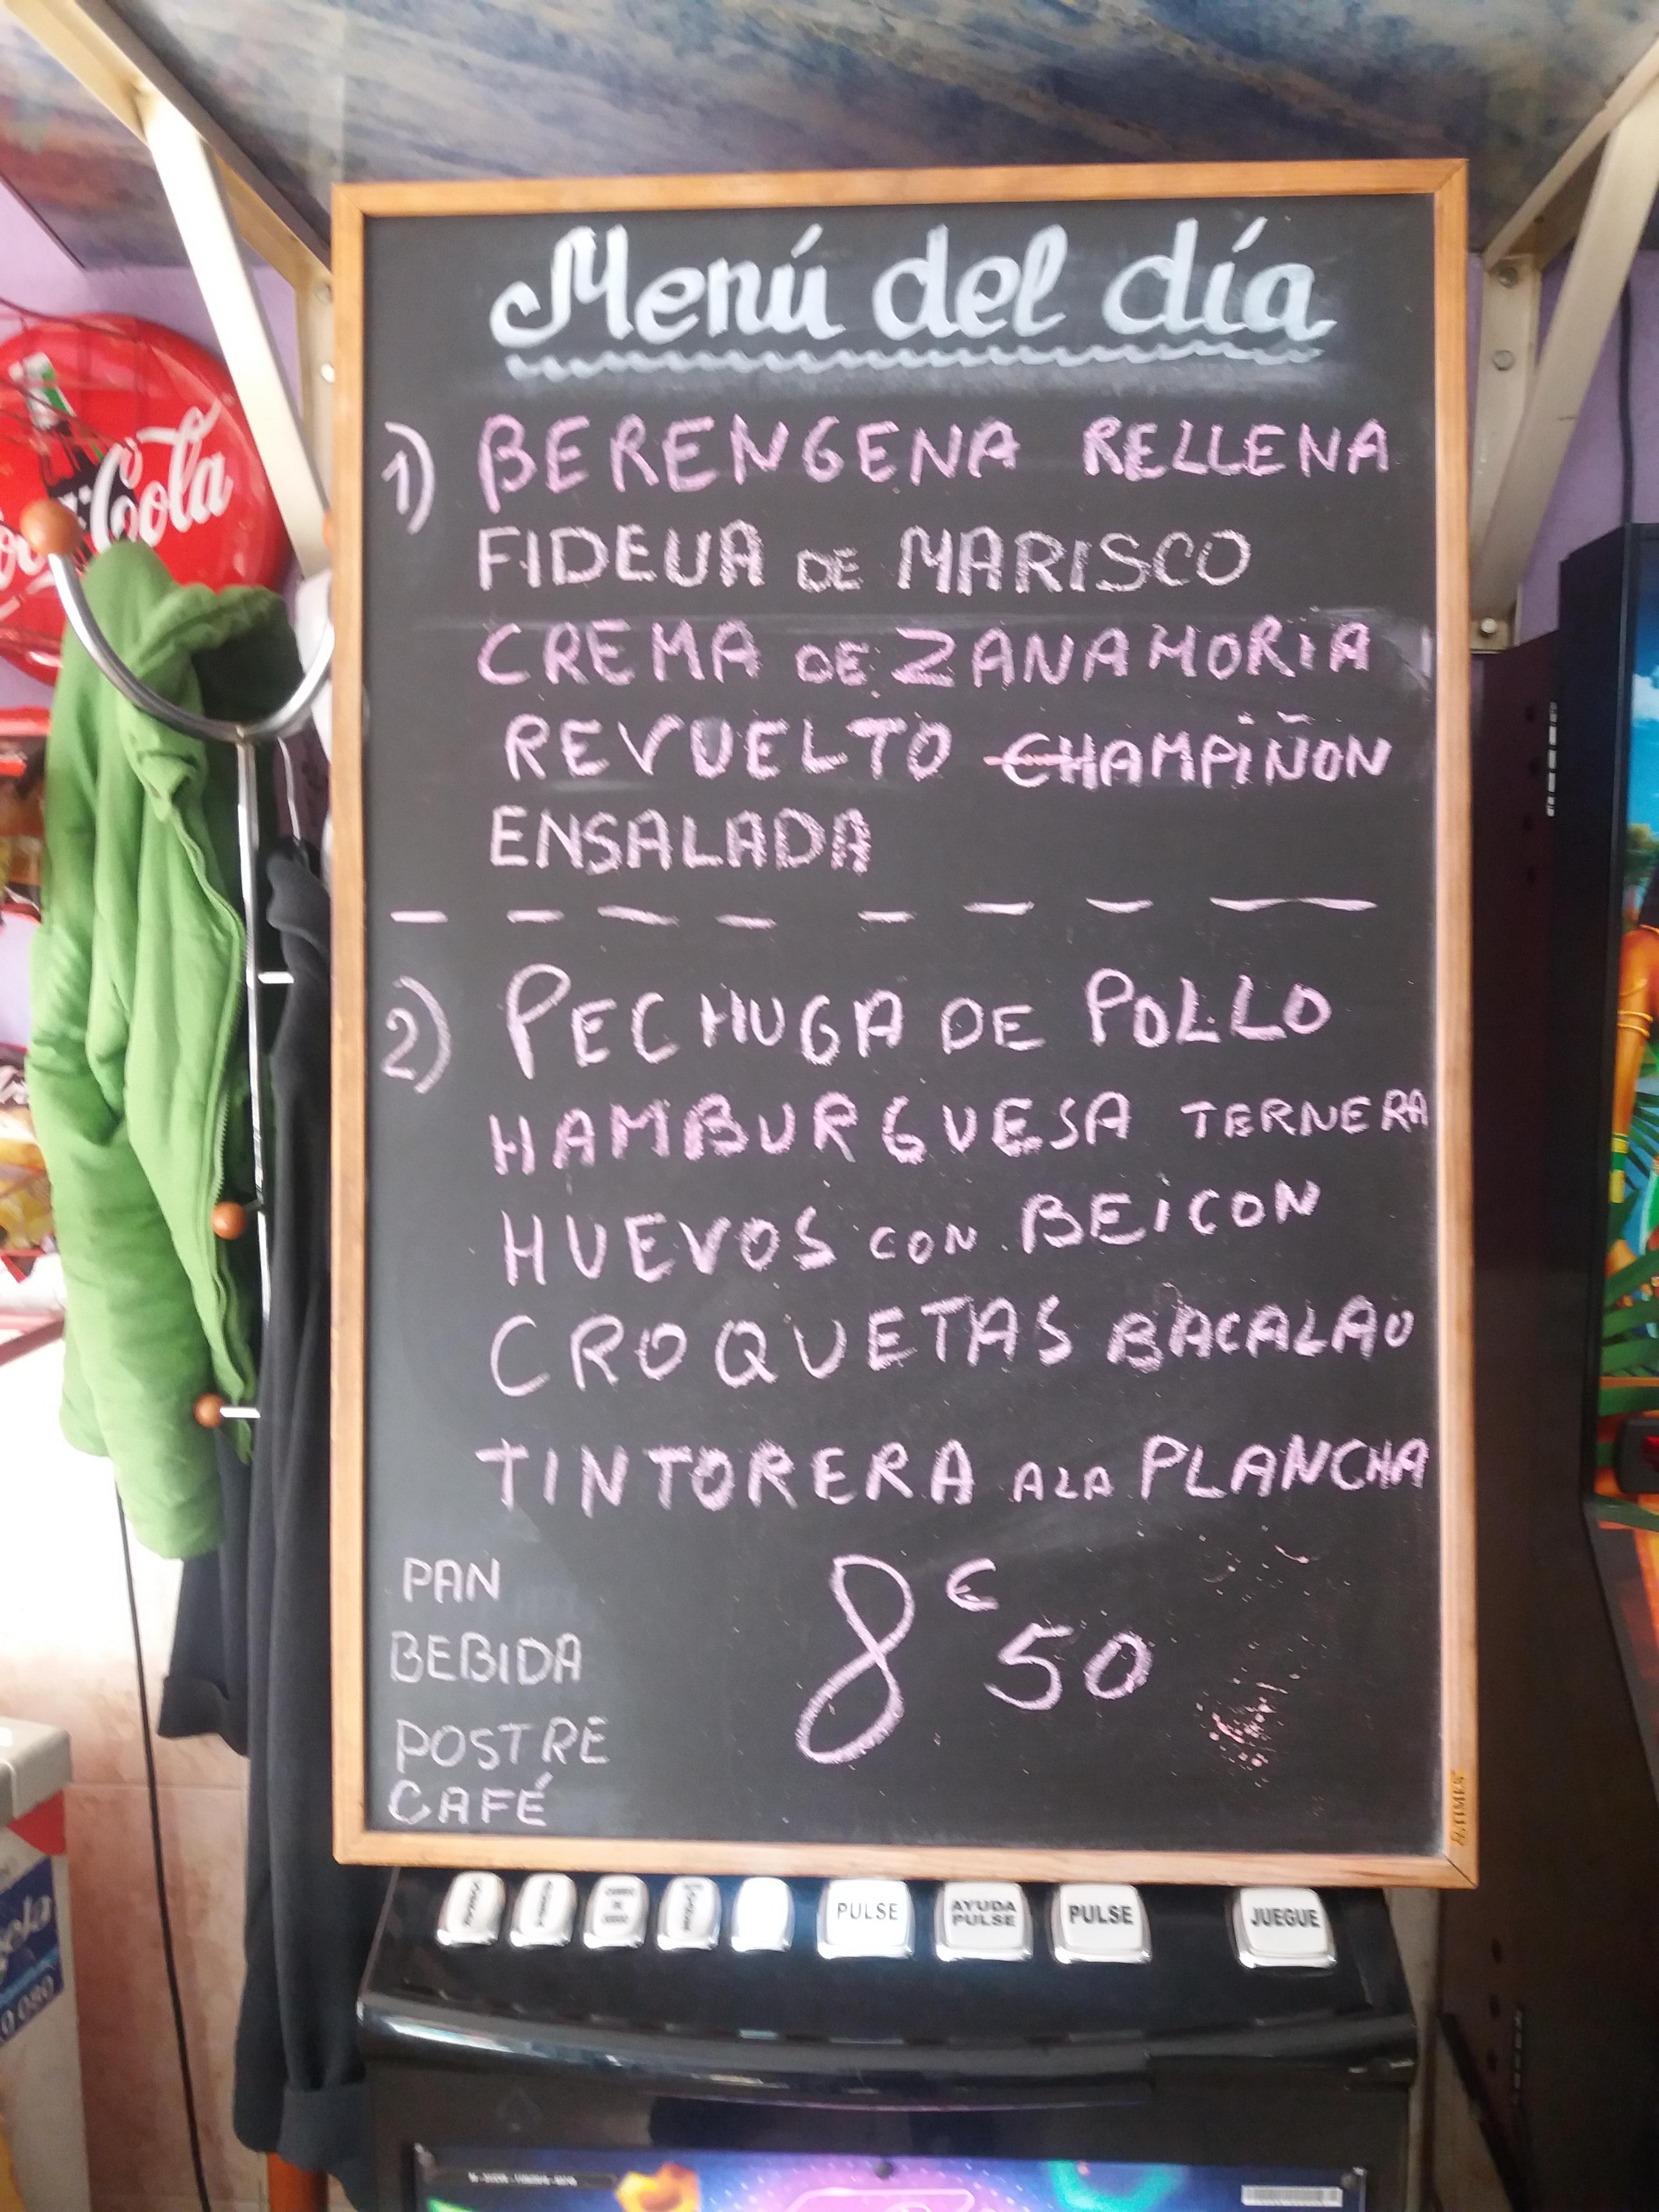 Menú del día
1) BERENGENA RELLENA
FIDEUA DE MARISCO
CREMA DE ZANAHORIA
REVUELTO CHAMPIÑON
ENSALADA
2) PECHUGA DE POLLO
HAMBURGUESA TERNERA
HUEVOS CON BEICON
CROQUETAS BACALAO
TINTORERA A LA PLANCHA
PAN
BEBIDA
POSTRE
CAFÉ
8€50
Coca-Cola
PULSE
AYUDA
PULSE
PULSE
JUEGUE